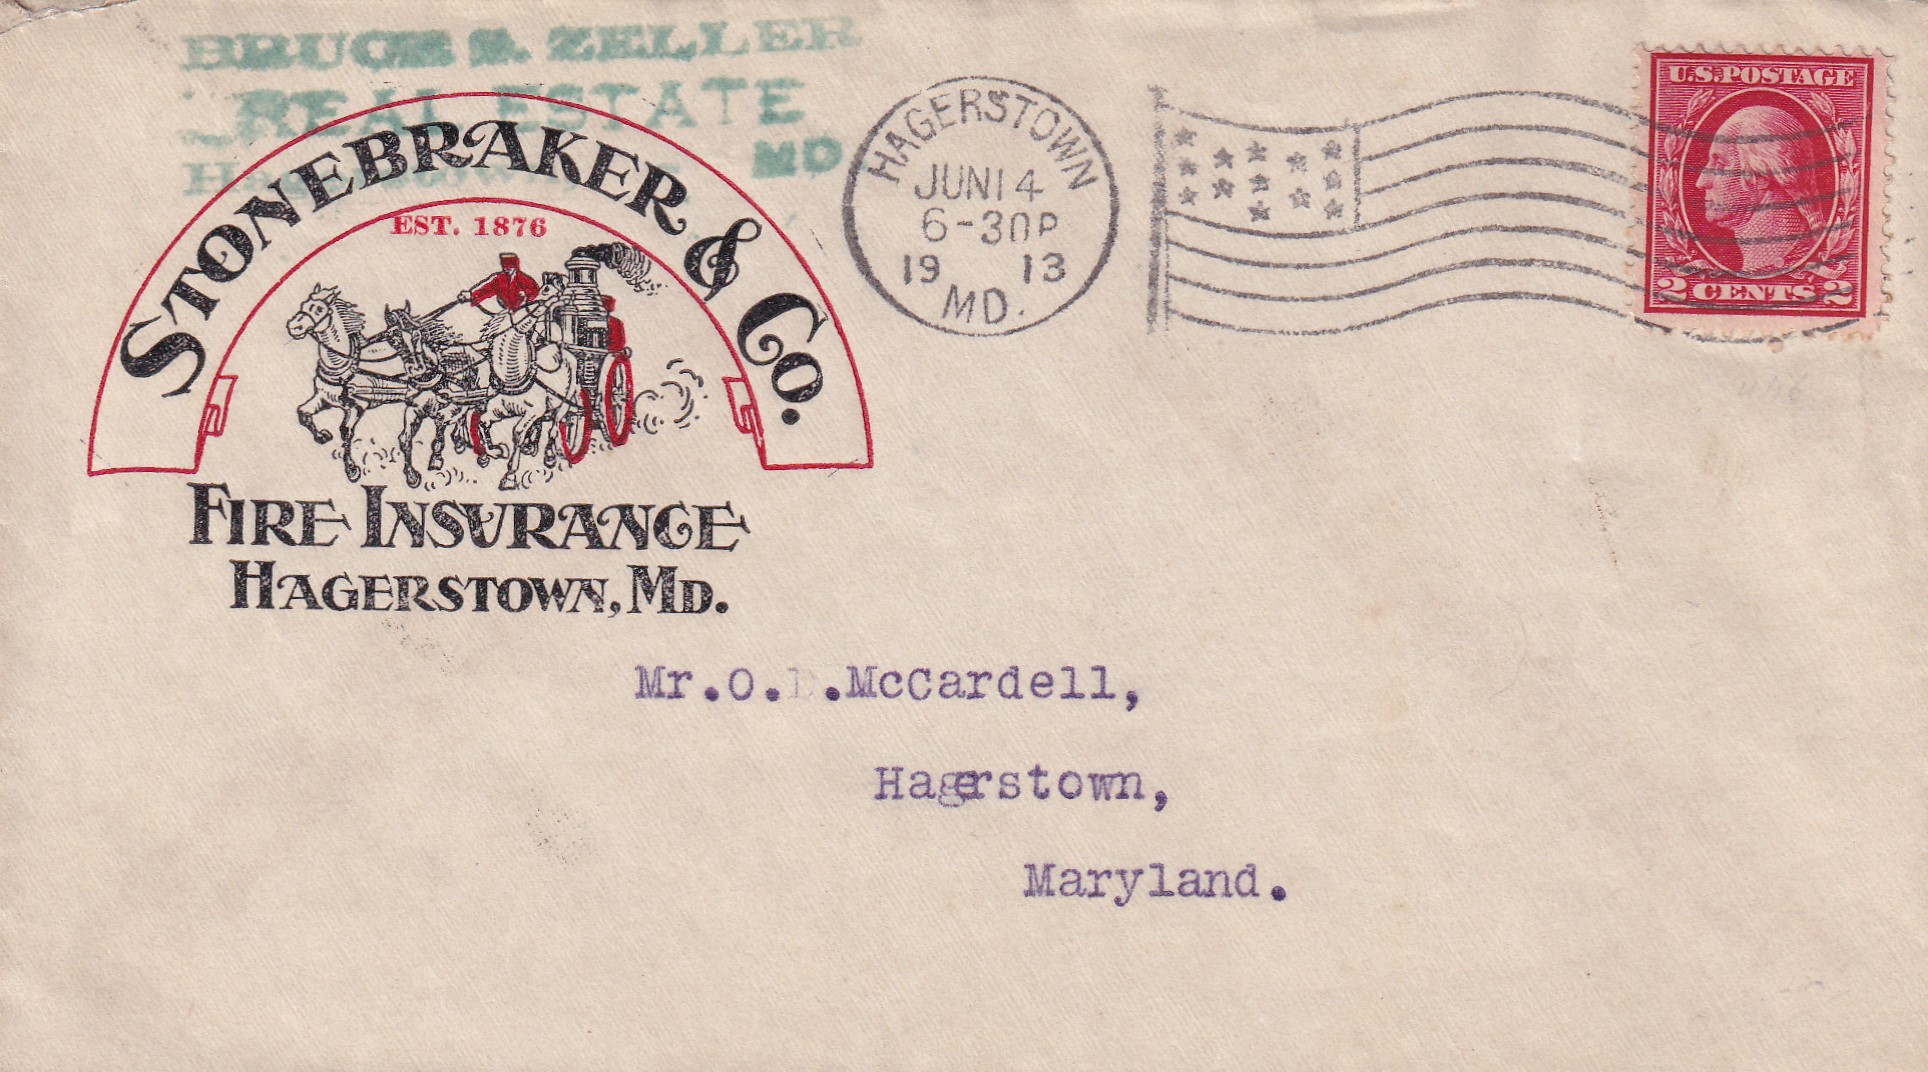 BRUCE S. ZELLER
REAL ESTATE
MD
STONEBRAKER & CO.
EST. 1876
FIRE INSURANCE
HAGERSTOWN, MD.
HAGERSTOWN
JUN 14
6-30P
19 13
MD.
U.S. POSTAGE
2 CENTS 2
Mr.O. .McCardell,
Hagerstown,
Maryland.